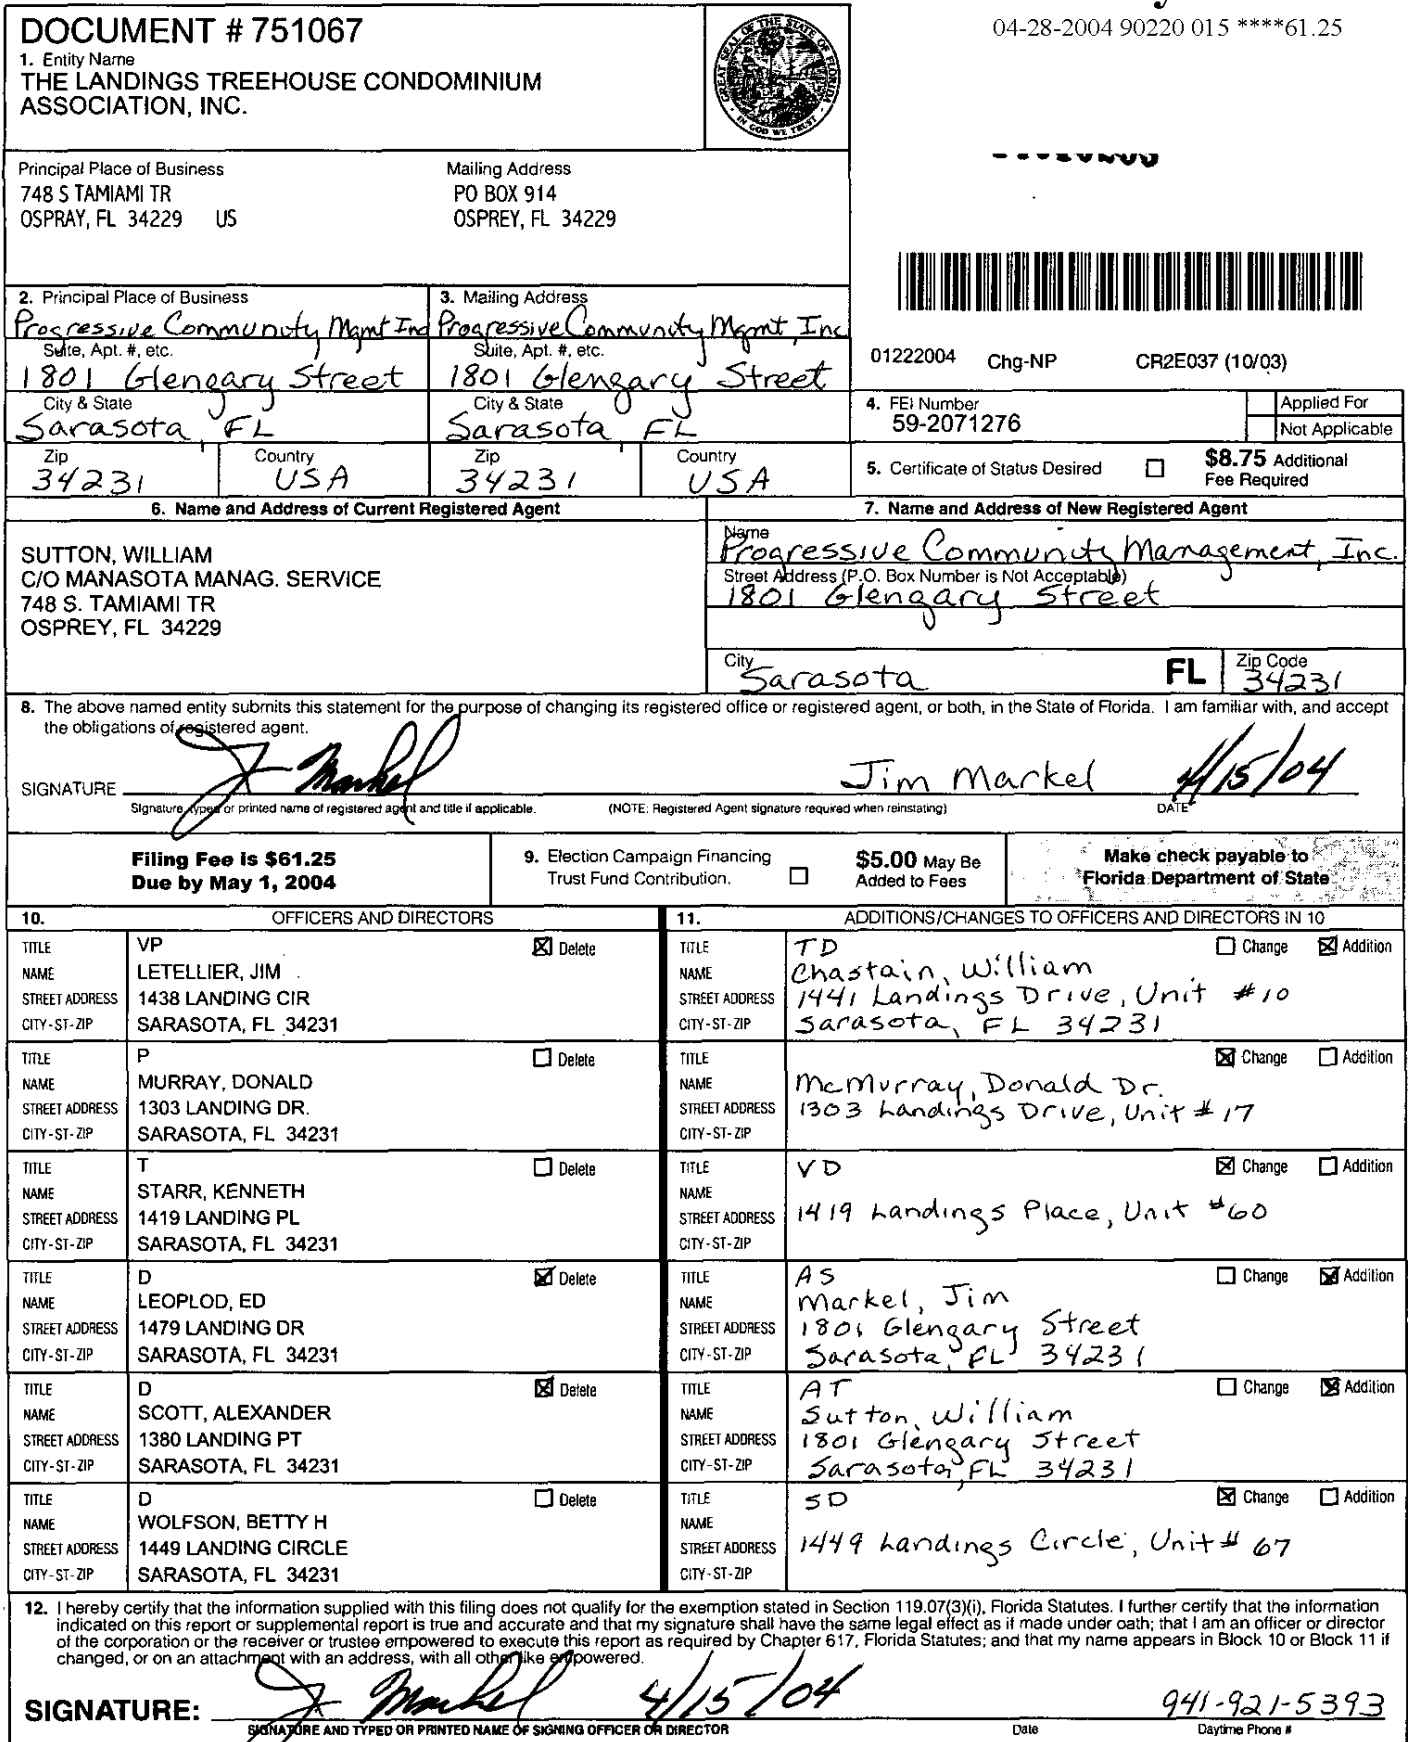 04-28-2004 90220 015 ****61.25
DOCUMENT # 751067
1. Entity Name
THE LANDINGS TREEHOUSE CONDOMINIUM
ASSOCIATION, INC.
GREAT SEAL OF THE STATE OF FLORIDA
IN GOD WE TRUST
Principal Place of Business
748 S TAMIAMI TR
OSPRAY, FL 34229 US
Mailing Address
PO BOX 914
OSPREY, FL 34229
2. Principal Place of Business
Progressive Community Mgmt Inc
Suite, Apt. #, etc.
1801 Glengary Street
City & State
Sarasota, FL
Zip
34231
Country
USA
3. Mailing Address
Progressive Community Mgmt Inc
Suite, Apt. #, etc.
1801 Glengary Street
City & State
Sarasota, FL
Zip
34231
Country
USA
01222004 Chg-NP CR2E037 (10/03)
4. FEI Number
59-2071276
Applied For
Not Applicable
5. Certificate of Status Desired
$8.75 Additional
Fee Required
6. Name and Address of Current Registered Agent
SUTTON, WILLIAM
C/O MANASOTA MANAG. SERVICE
748 S. TAMIAMI TR
OSPREY, FL 34229
7. Name and Address of New Registered Agent
Name
Progressive Community Management, Inc.
Street Address (P.O. Box Number is Not Acceptable)
1801 Glengary Street
City
Sarasota
FL
Zip Code
34231
8. The above named entity submits this statement for the purpose of changing its registered office or registered agent, or both, in the State of Florida. I am familiar with, and accept
the obligations of registered agent.
SIGNATURE J Markel Jim Markel 4/15/04
Signature, typed or printed name of registered agent and title if applicable. (NOTE: Registered Agent signature required when reinstating) DATE
Filing Fee is $61.25
Due by May 1, 2004
9. Election Campaign Financing
Trust Fund Contribution.
$5.00 May Be
Added to Fees
Make check payable to
Florida Department of State
10. OFFICERS AND DIRECTORS
11. ADDITIONS/CHANGES TO OFFICERS AND DIRECTORS IN 10
TITLE VP Delete
NAME LETELLIER, JIM
STREET ADDRESS 1438 LANDING CIR
CITY-ST-ZIP SARASOTA, FL 34231
TITLE TD Change Addition
NAME Chastain, William
STREET ADDRESS 1441 Landings Drive, Unit #10
CITY-ST-ZIP Sarasota, FL 34231
TITLE P Delete
NAME MURRAY, DONALD
STREET ADDRESS 1303 LANDING DR.
CITY-ST-ZIP SARASOTA, FL 34231
TITLE Change Addition
NAME McMurray, Donald Dr.
STREET ADDRESS 1303 Landings Drive, Unit #17
CITY-ST-ZIP
TITLE T Delete
NAME STARR, KENNETH
STREET ADDRESS 1419 LANDING PL
CITY-ST-ZIP SARASOTA, FL 34231
TITLE VD Change Addition
NAME
STREET ADDRESS 1419 Landings Place, Unit #60
CITY-ST-ZIP
TITLE D Delete
NAME LEOPLOD, ED
STREET ADDRESS 1479 LANDING DR
CITY-ST-ZIP SARASOTA, FL 34231
TITLE AS Change Addition
NAME Markel, Jim
STREET ADDRESS 1801 Glengary Street
CITY-ST-ZIP Sarasota, FL 34231
TITLE D Delete
NAME SCOTT, ALEXANDER
STREET ADDRESS 1380 LANDING PT
CITY-ST-ZIP SARASOTA, FL 34231
TITLE AT Change Addition
NAME Sutton, William
STREET ADDRESS 1801 Glengary Street
CITY-ST-ZIP Sarasota, FL 34231
TITLE D Delete
NAME WOLFSON, BETTY H
STREET ADDRESS 1449 LANDING CIRCLE
CITY-ST-ZIP SARASOTA, FL 34231
TITLE SD Change Addition
NAME
STREET ADDRESS 1449 Landings Circle, Unit # 67
CITY-ST-ZIP
12. I hereby certify that the information supplied with this filing does not qualify for the exemption stated in Section 119.07(3)(i), Florida Statutes. I further certify that the information
indicated on this report or supplemental report is true and accurate and that my signature shall have the same legal effect as if made under oath; that I am an officer or director
of the corporation or the receiver or trustee empowered to execute this report as required by Chapter 617, Florida Statutes; and that my name appears in Block 10 or Block 11 if
changed, or on an attachment with an address, with all other like empowered.
SIGNATURE: J Markel 4/15/04 941-921-5393
SIGNATURE AND TYPED OR PRINTED NAME OF SIGNING OFFICER OR DIRECTOR Date Daytime Phone #